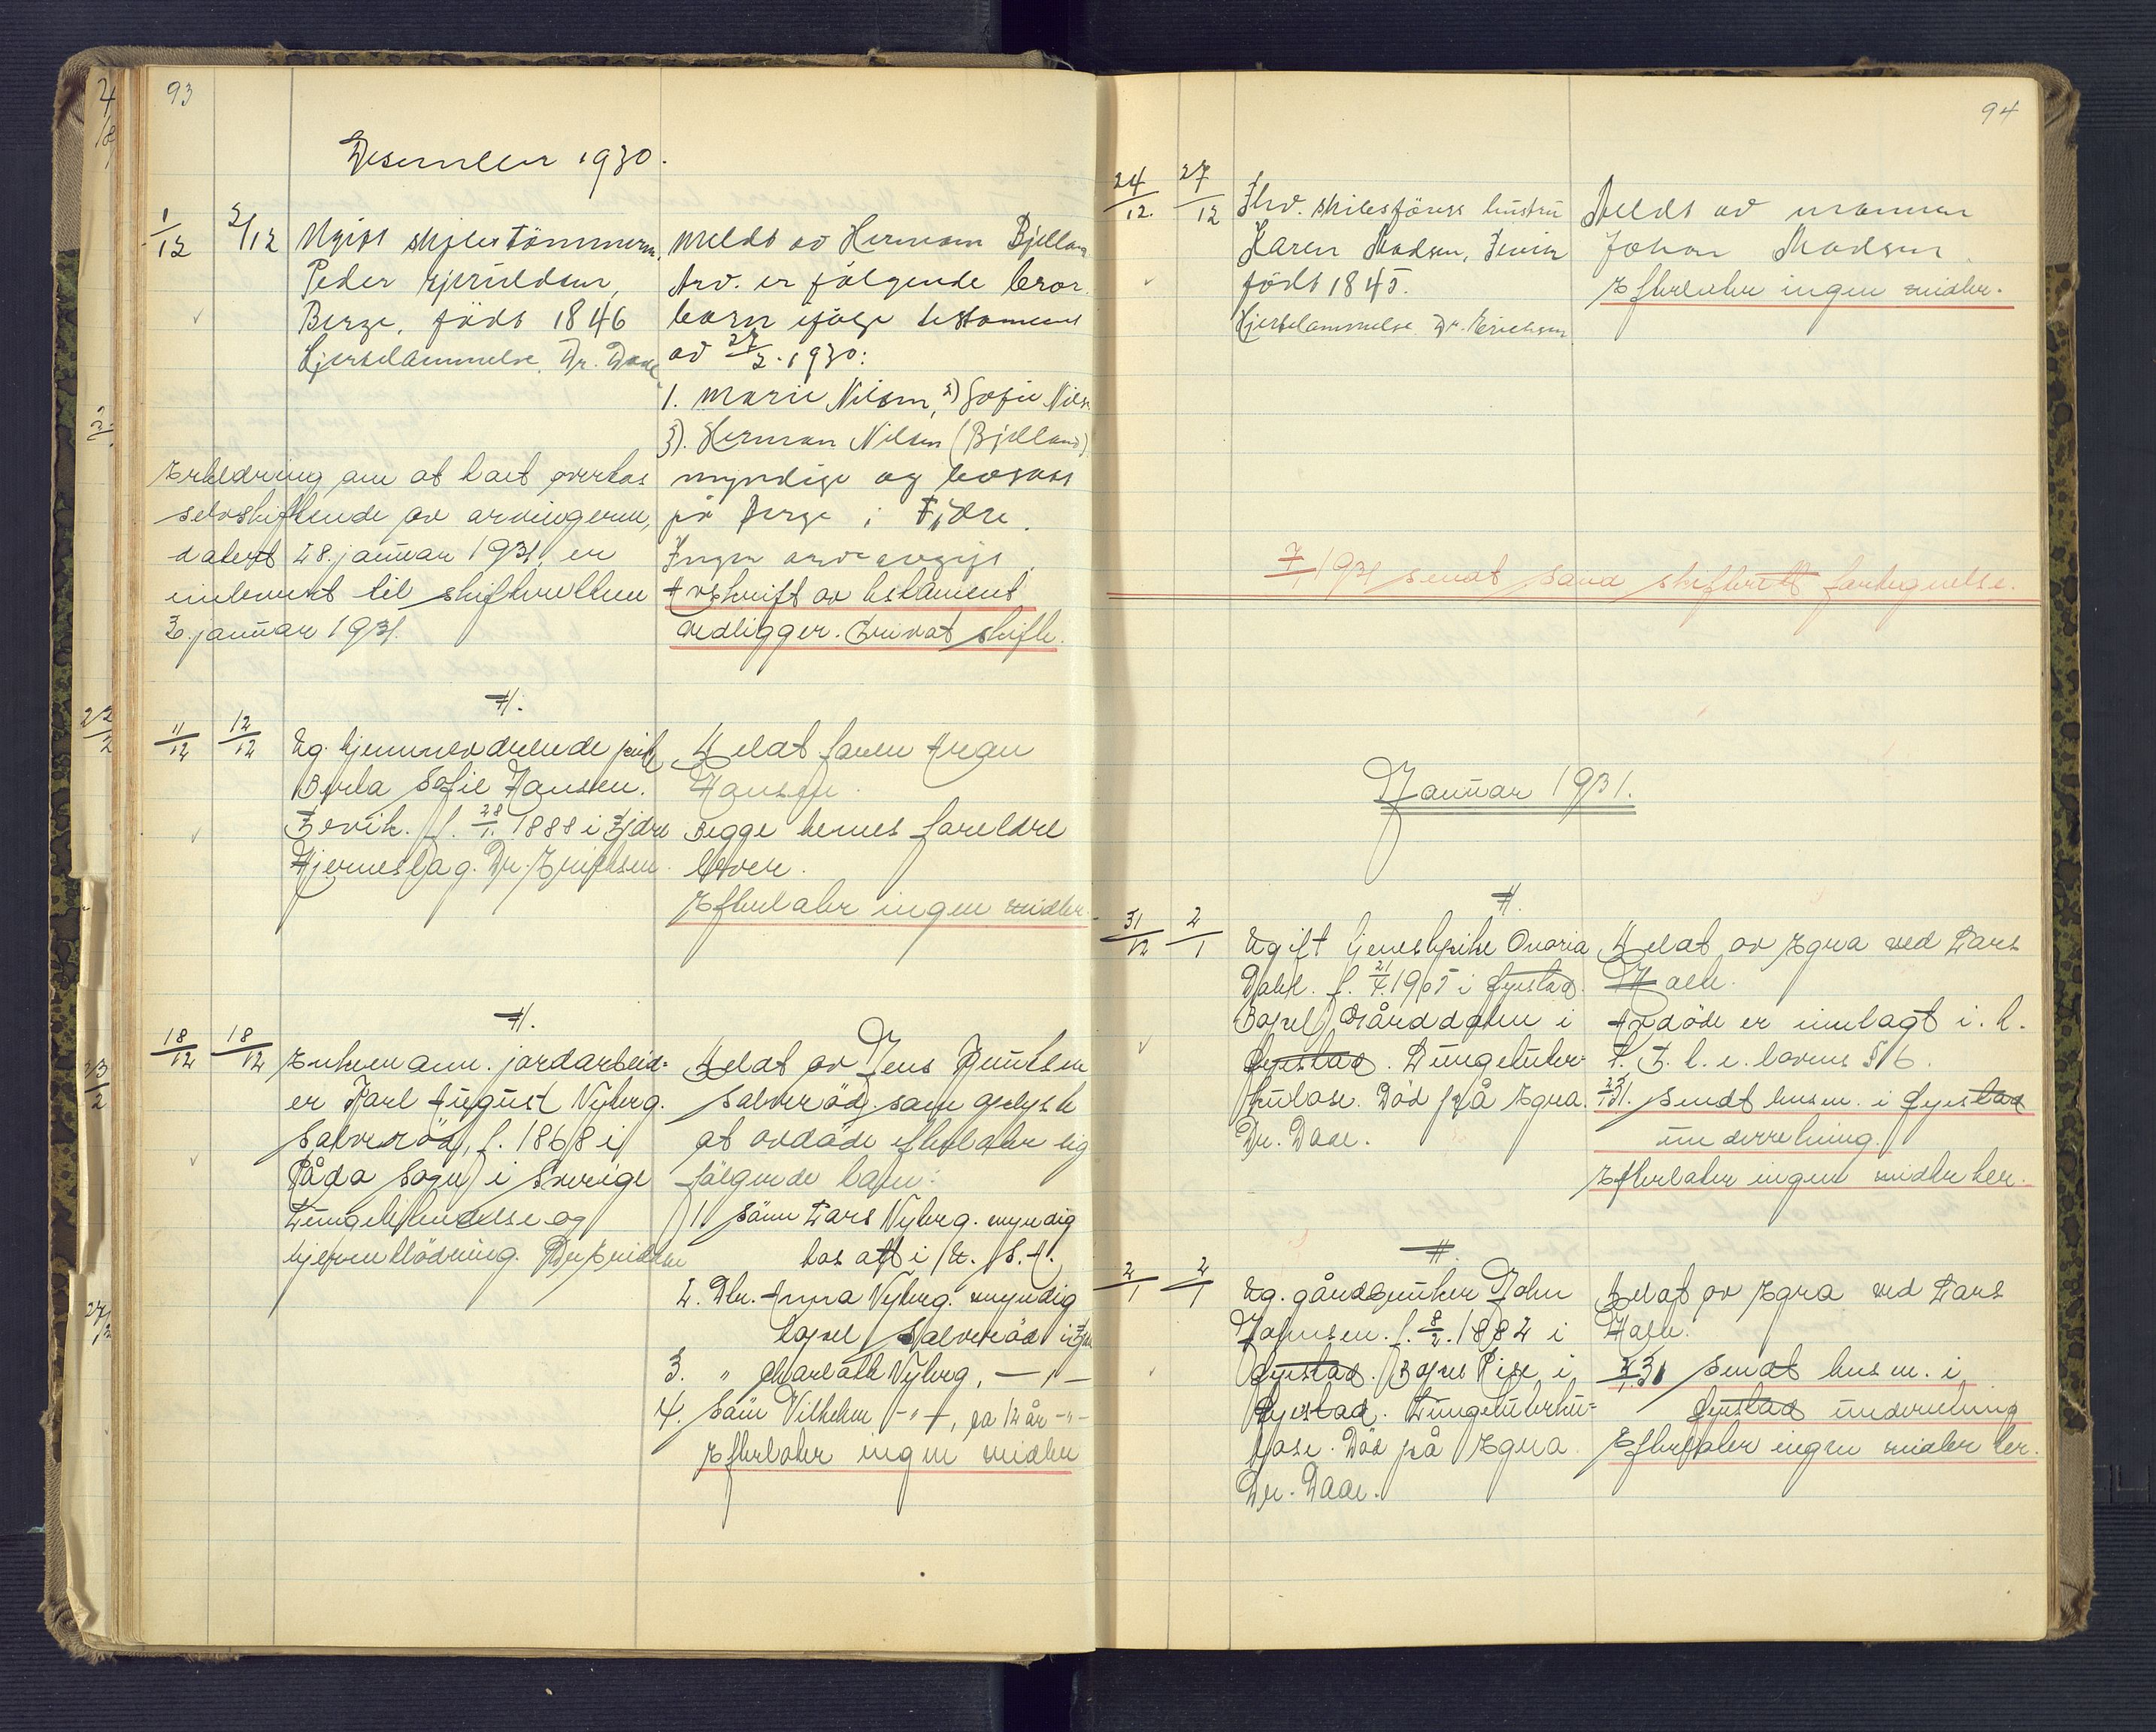 93
Desember 1930.
1/12 2/12 Ugift skibstömmerm.
Peder Gjeruldsen,
Berge, född 1846
Hjertelammelse. Dr. Daae
Meldt av Herman Bjelland
Arv. er følgende bror
barn ifølge testament
av 27/2. 1930:
1. Marie Nilsen, 2) Sofie Nils
3). Herman Nilsen (Bjelland)
myndige og bosatt
på Berge i Fjære.
Ingen arveavgift
Avskrift av testament
vedligger. Privat skifte.
Erkledring om at boet overtas
selvskiftende av arvingerne,
datert 28. januar 1931, er
innlevert til skifteretten
3. januar 1931.
H.
11/12 12/12 Ug. hjemmeværende pike
Berta Sofie Hansen.
Fevik. f. 28/1. 1888 i Fjære
Hjerneslag. Dr. Erichsen.
Meldt faren
Hansen.
Begge hennes foreldre
lever.
Efterlater ingen midler
H.
18/12 18/12 Enkemann. jordarbeid-
er Karl August Nyberg.
Salveröd, f. 1868 i
Råda Sogn i Sverige
Lungebetendelse og
hjerneblödning. Dr. Erichsen
Meldt av Jens Knutsen
Salveröd som oplyste
at avdöde efterlater sig
fölgende barn:
1. Sönn Lars Nyberg. myndig
bosatt i U. S. A.
2. Dtr. Anna Nyberg. myndig
bopel Salveröd i Fjære
3. " Charlotte Nyberg, — " —
4. Sönn Vilhelm — " —, ca 12 år — " —
Efterlater ingen midler
94
24/12. 27/12 Fhv. skibsförers hustru
Karen Madsen, Fevik
född 1845.
Hjertelammelse. Dr. Erichsen
Meldt av mannen
Johan Madsen.
Efterlater ingen midler.
7/1 1931 sendt Sand skifterett fortegnelse.
Januar 1931.
H.
31/12 2/1 Ugift tjenestepike
Dahl. f. 21/7. 1905 i Gjerstad.
Bopel i
Gjerstad. Lungetuber-
kulose. Död på Egra.
Dr. Daae.
Meldt av Egra ved Lars
Avdöde er innlagt i. h.
t. T. l. s. lovens § 6.
2/1 31. Sendt lensm. i Gjerstad
underretning.
Efterlater ingen midler her.
H.
2/1 2/1 Ug. gårdbruker John
Johnsen. f. 8/2. 1882 i
Gjerstad. Bopel i
Gjerstad. Lungetuberku-
lose. Död på Egra.
Dr. Daae.
Meldt av Egra ved Lars
2/1. 31 Sendt lensm. i
Gjerstad underretning
Efterlater ingen midler her.